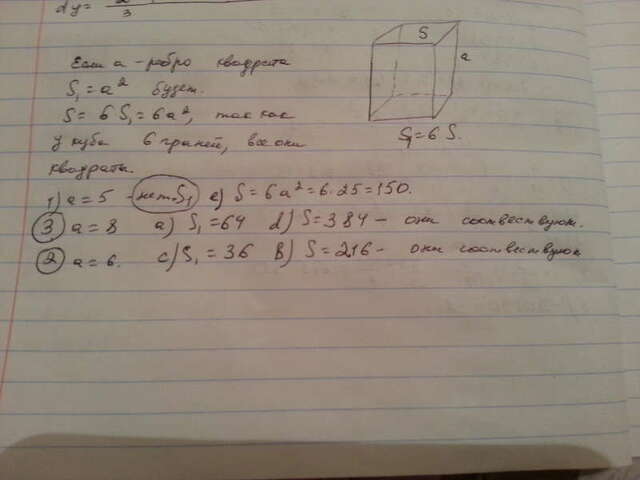 dy =
3
Если a - ребро квадрата
S₁ = a² будет.
S = 6 S₁ = 6a², так как
у куба 6 граней, все они
квадраты.
S
a
S₁ = 6 S.
1) a = 5 - нет S₁ e) S = 6a² = 6 · 25 = 150.
3 a = 8 a) S₁ = 64 d) S = 384 - они соотвествуют.
2 a = 6. c) S₁ = 36 b) S = 216 - они соотвествуют